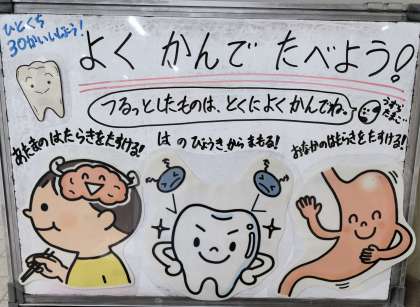 ひとくち
30かいいじょう!
よく かんで たべよう!
つるっとしたものは、とくによくかんでね。
うずら
たまご…
あたまのはたらきをたすける!
はのびょうきからまもる!
おなかのはたらきをたすける!